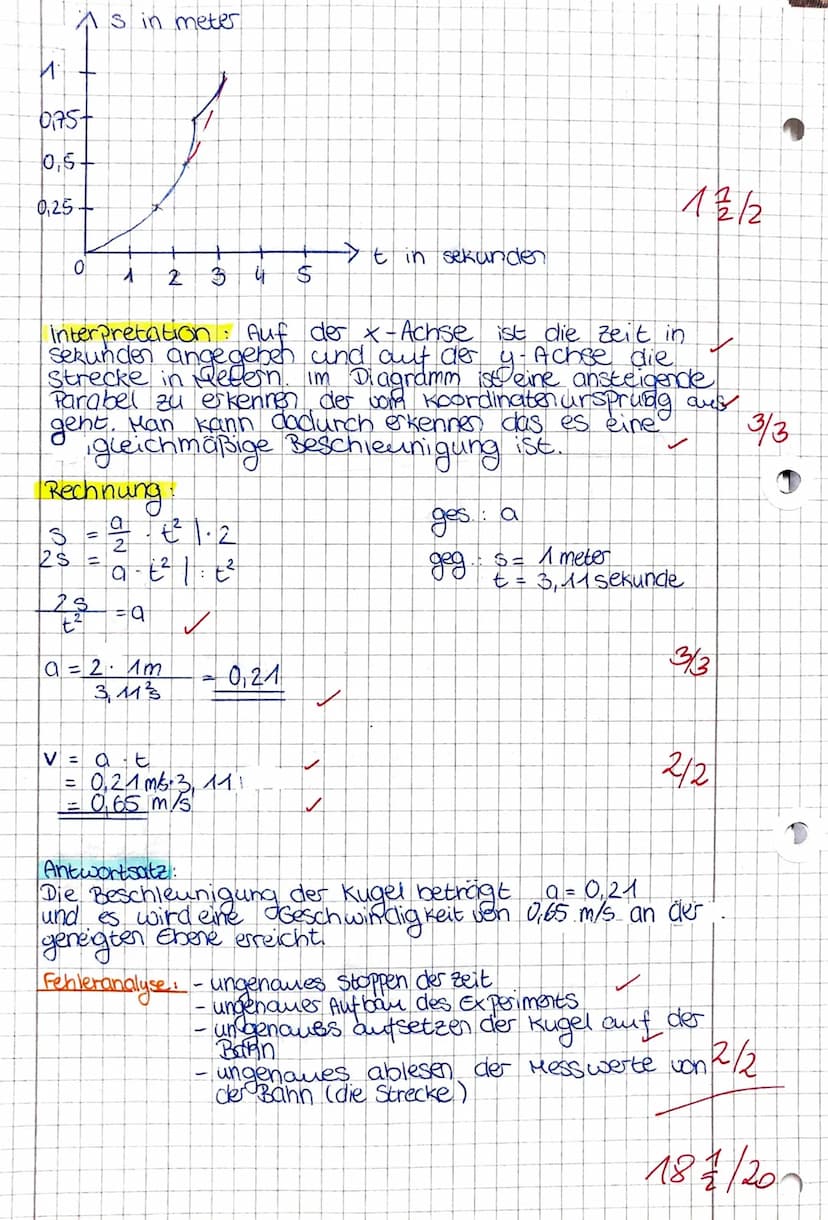 s in meter
1
0,75
0,5
0,25
0 1 2 3 4 5 t in sekunden
1 1/2/2
Interpretation: Auf der x-Achse ist die Zeit in
sekunden angegeben und auf der y-Achse die
Strecke in Metern. im Diagramm ist eine ansteigende
Parabel zu erkennen der vom Koordinatenursprung aus
geht. Man kann dadurch erkennen das es eine
gleichmäßige Beschleunigung ist.
3/3
Rechnung:
s = a/2 · t² | · 2
2s = a · t² | : t²
2s/t² = a
ges.: a
geg.: s = 1 meter
t = 3,11 sekunde
a = 2 · 1m / 3,11²s = 0,21
3/3
v = a · t
= 0,21 m/s · 3,11
= 0,65 m/s
2/2
Antwortsatz:
Die Beschleunigung der Kugel beträgt a = 0,21
und es wird eine Geschwindigkeit von 0,65 m/s an der
geneigten Ebene erreicht.
Fehleranalyse: - ungenaues stoppen der zeit
- ungenauer Aufbau des Experiments
- ungenaues aufsetzen der Kugel auf der
Bahn
- ungenaues ablesen der Messwerte von
der Bahn (die Strecke)
2/2
18 1/2/20